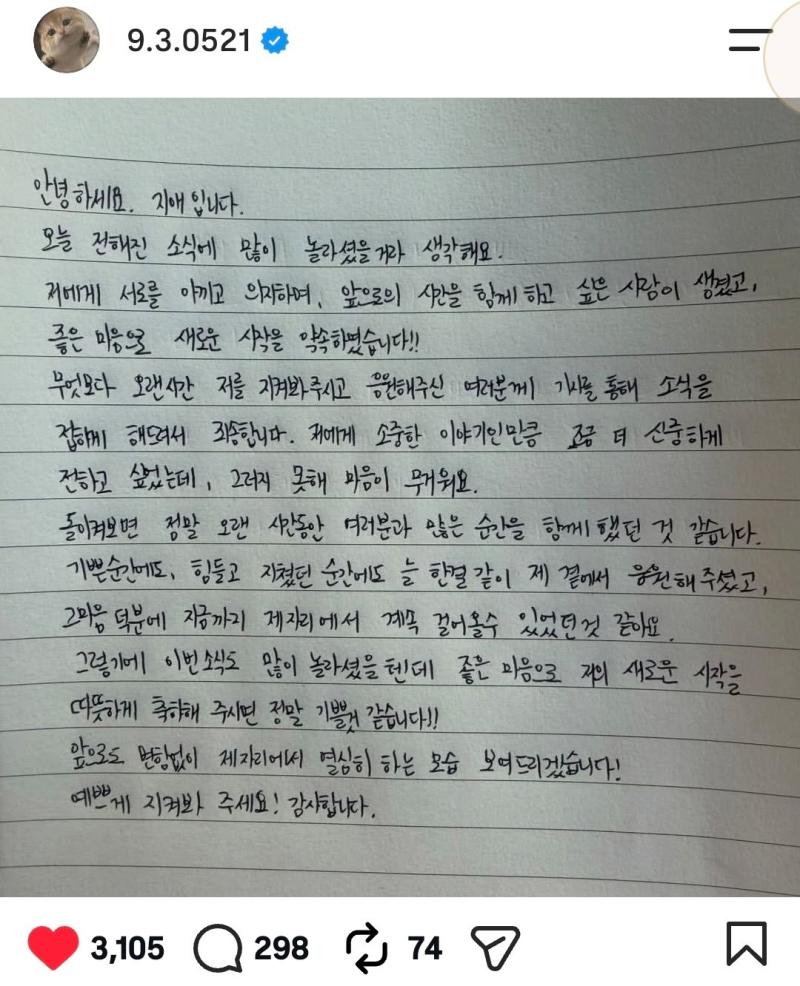 9.3.0521
안녕하세요. 지애입니다.
오늘 전해진 소식에 많이 놀라셨을거라 생각해요.
저에게 서로를 아끼고 의지하며, 앞으로의 시간을 함께 하고 싶은 사람이 생겼고,
좋은 마음으로 새로운 시작을 약속하였습니다!!
무엇보다 오랜시간 저를 지켜봐주시고 응원해주신 여러분께 기사를 통해 소식을
접하게 해드려서 죄송합니다. 저에게 소중한 이야기인만큼 조금 더 신중하게
전하고 싶었는데, 그러지 못해 마음이 무거워요.
돌이켜보면 정말 오랜 시간동안 여러분과 많은 순간을 함께 했던 것 같습니다.
기쁜순간에도, 힘들고 지쳤던 순간에도 늘 한결같이 제 곁에서 응원해주셨고,
그마음 덕분에 지금까지 제자리에서 계속 걸어올수 있었던것 같아요.
그렇기에 이번소식도 많이 놀라셨을텐데 좋은 마음으로 저의 새로운 시작을
따뜻하게 축하해 주시면 정말 기쁠것 같습니다!!
앞으로도 변함없이 제자리에서 열심히 하는 모습 보여드리겠습니다!
예쁘게 지켜봐 주세요! 감사합니다.
3,105 298 74